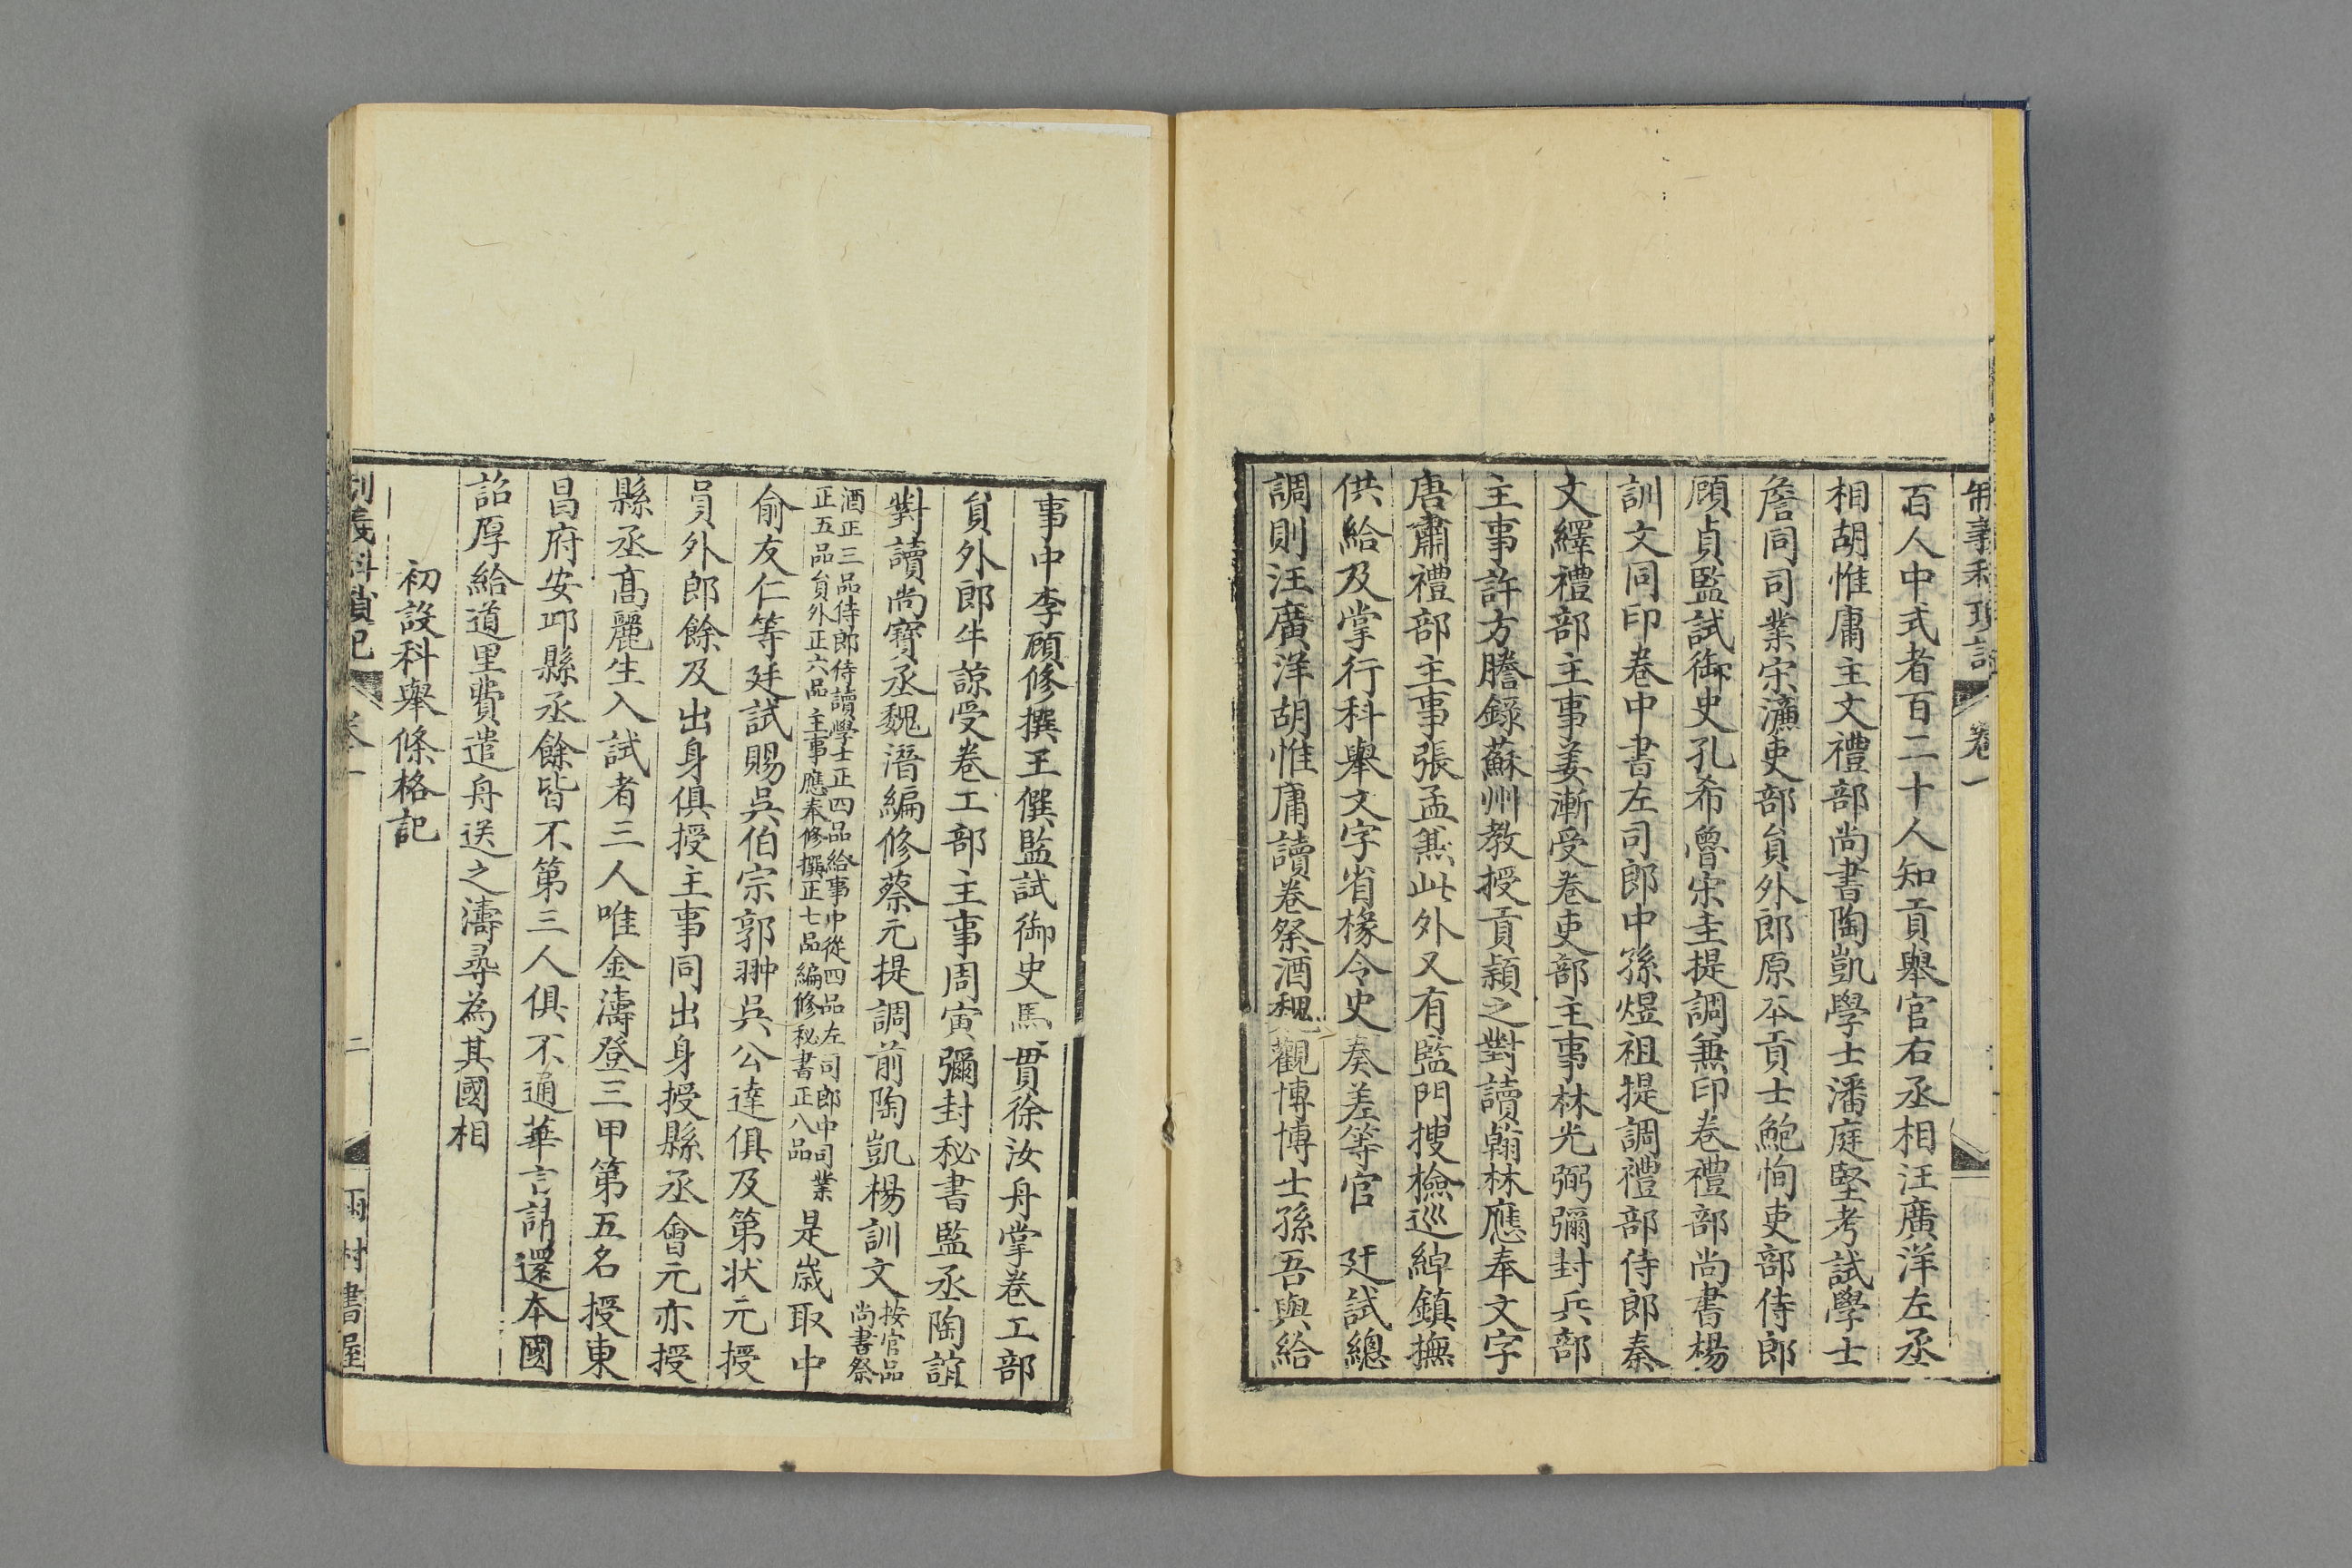 制義科瑣記 卷一
百人中式者百二十人知貢舉官右丞相汪廣洋左丞
相胡惟庸主文禮部尚書陶凱學士潘庭堅考試學士
詹同司業宋濂吏部貟外郎原本貢士鮑恂吏部侍郎
顧貞監試御史孔希魯宋圭提調兼印卷禮部尚書楊
訓文同印卷中書左司郎中孫煜祖提調禮部侍郎秦
文繹禮部主事姜漸受卷吏部主事林光弼彌封兵部
主事許方謄錄蘇州教授貢潁之對讀翰林應奉文字
唐肅禮部主事張孟兼此外又有監門搜檢巡綽鎮撫
供給及掌行科舉文字省椽令史奏差等官 廷試總
調則汪廣洋胡惟庸讀卷祭酒魏觀博博士孫吾與給
事中李顧修撰王僎監試御史馬貫徐汝舟掌卷工部
貟外郎牛諒受卷工部主事周寅彌封秘書監丞陶誼
對讀尚寶丞魏潛編修蔡元提調前陶凱楊訓文按官品尚書祭
酒正三品侍郎侍讀學士正四品給事中從四品左司郎中司業
正五品貟外正六品主事應奉修撰正七品編修秘書正八品
是歲取中
俞友仁等廷試賜吳伯宗郭翀吳公達俱及第狀元授
員外郎餘及出身俱授主事同出身授縣丞會元亦授
縣丞髙麗生入試者三人唯金濤登三甲第五名授東
昌府安邱縣丞餘皆不第三人俱不通華言請還本國
詔厚給道里費遣舟送之濤尋為其國相
初設科舉條格記
制義科瑣記 卷一 二 雨村書屋